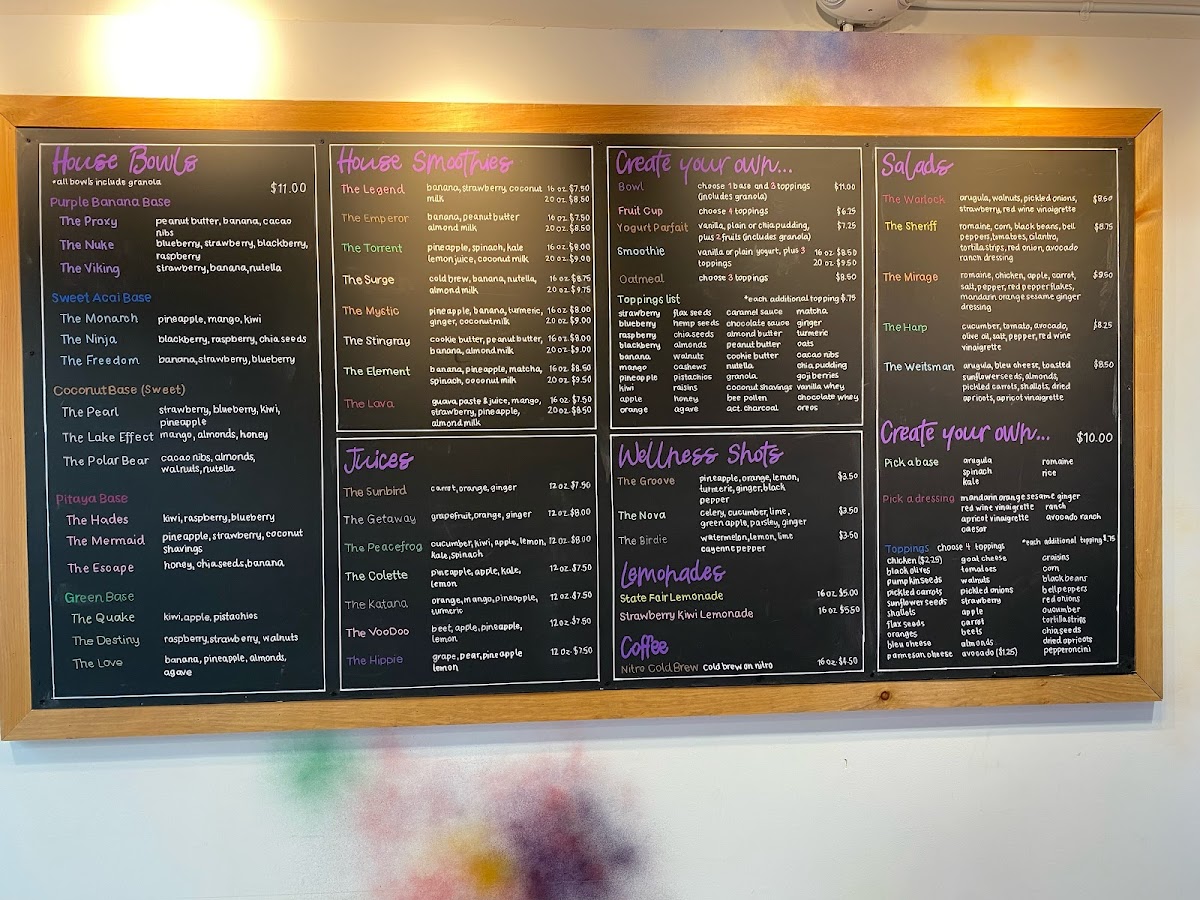 House Bowls
*all bowls include granola
$11.00
Purple Banana Base
The Proxy peanut butter, banana, cacao
nibs
The Nuke blueberry, strawberry, blackberry,
raspberry
The Viking strawberry, banana, nutella
Sweet Acai Base
The Monarch pineapple, mango, kiwi
The Ninja blackberry, raspberry, chia seeds
The Freedom banana, strawberry, blueberry
Coconut Base (Sweet)
The Pearl strawberry, blueberry, kiwi,
pineapple
The Lake Effect mango, almonds, honey
The Polar Bear cacao nibs, almonds,
walnuts, nutella
Pitaya Base
The Hades kiwi, raspberry, blueberry
The Mermaid pineapple, strawberry, coconut
shavings
The Escape honey, chia seeds, banana
Green Base
The Quake kiwi, apple, pistachios
The Destiny raspberry, strawberry, walnuts
The Love banana, pineapple, almonds,
agave
House Smoothies
The Legend banana, strawberry, coconut 16 oz. $7.50
milk 20 oz. $8.50
The Emperor banana, peanut butter 16 oz. $7.50
almond milk 20 oz. $8.50
The Torrent pineapple, spinach, kale 16 oz. $8.00
lemon juice, coconut milk 20 oz. $9.00
The Surge cold brew, banana, nutella, 16 oz. $8.75
almond milk 20 oz. $9.75
The Mystic pineapple, banana, turmeric, 16 oz. $8.00
ginger, coconut milk 20 oz. $9.00
The Stingray cookie butter, peanut butter, 16 oz. $8.00
banana, almond milk 20 oz. $9.00
The Element banana, pineapple, matcha, 16 oz. $8.50
spinach, coconut milk 20 oz. $9.50
The Lava guava paste & juice, mango, 16 oz. $7.50
strawberry, pineapple, 20 oz. $8.50
almond milk
Juices
The Sunbird carrot, orange, ginger 12 oz. $7.50
The Getaway grapefruit, orange, ginger 12 oz. $8.00
The Peacefrog cucumber, kiwi, apple, lemon, 12 oz. $8.00
kale, spinach
The Colette pineapple, apple, kale, 12 oz. $7.50
lemon
The Katana orange, mango, pineapple, 12 oz. $7.50
turmeric
The VooDoo beet, apple, pineapple, 12 oz. $7.50
lemon
The Hippie grape, pear, pineapple 12 oz. $7.50
lemon
Create your own...
Bowl choose 1 base and 3 toppings $11.00
(includes granola)
Fruit Cup choose 4 toppings $6.25
Yogurt Parfait vanilla, plain or chia pudding, $7.25
plus 2 fruits (includes granola)
Smoothie vanilla or plain yogurt, plus 3 16 oz. $8.50
toppings 20 oz. $9.50
Oatmeal choose 3 toppings $8.50
Toppings list *each additional topping $.75
strawberry flax seeds caramel sauce matcha
blueberry hemp seeds chocolate sauce ginger
raspberry chia seeds almond butter turmeric
blackberry almonds peanut butter oats
banana walnuts cookie butter cacao nibs
mango cashews nutella chia pudding
pineapple pistachios granola goji berries
kiwi raisins coconut shavings vanilla whey
apple honey bee pollen chocolate whey
orange agave act. charcoal oreos
Wellness Shots
The Groove pineapple, orange, lemon, $3.50
turmeric, ginger, black
pepper
The Nova celery, cucumber, lime, $3.50
green apple, parsley, ginger
The Birdie watermelon, lemon, lime $3.50
cayenne pepper
Lemonades
State Fair Lemonade 16 oz $5.00
Strawberry Kiwi Lemonade 16 oz $5.50
Coffee
Nitro Cold Brew cold brew on nitro 16 oz. $4.50
Salads
The Warlock arugula, walnuts, pickled onions,
strawberry, red wine vinaigrette
The Sheriff romaine, corn, black beans, bell $8.75
peppers, tomatoes, cilantro,
tortilla strips, red onion, avocado
ranch dressing
The Mirage romaine, chicken, apple, carrot, $9.50
salt, pepper, red pepper flakes,
mandarin orange sesame ginger
dressing
The Harp cucumber, tomato, avocado, $8.25
olive oil, salt, pepper, red wine
vinaigrette
The Weitsman arugula, bleu cheese, toasted $8.50
sunflower seeds, almonds,
pickled carrots, shallots, dried
apricots, apricot vinaigrette
Create your own...
$10.00
Pick a base arugula romaine
spinach rice
kale
Pick a dressing mandarin orange sesame ginger
red wine vinaigrette ranch
apricot vinaigrette avocado ranch
caesar
Toppings choose 4 toppings *each additional topping $.75
chicken ($2.25) goat cheese craisins
black olives tomatoes corn
pumpkin seeds walnuts black beans
pickled carrots pickled onions bell peppers
sunflower seeds strawberry red onions
shallots apple cucumber
flax seeds carrot tortilla strips
oranges beets chia seeds
bleu cheese almonds dried apricots
parmesan cheese avocado ($1.25) pepperoncini